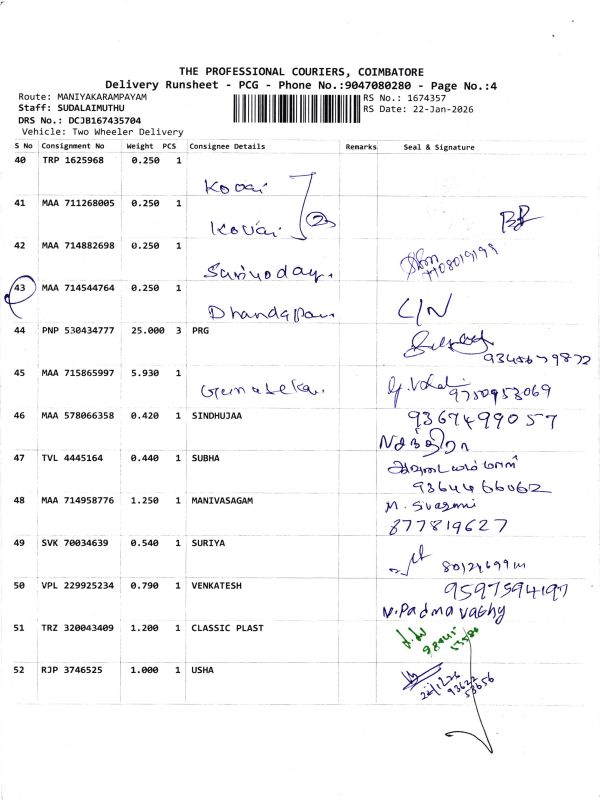 THE PROFESSIONAL COURIERS, COIMBATORE
Delivery Runsheet - PCG - Phone No.:9047080280 - Page No.:4
Route: MANIYAKARAMPAYAM
RS No.: 1674357
Staff: SUDALAIMUTHU
RS Date: 22-Jan-2026
DRS No.: DCJB167435704
Vehicle: Two Wheeler Delivery
S No Consignment No Weight PCS Consignee Details Remarks Seal & Signature
40 TRP 1625968 0.250 1
Kovai
41 MAA 711268005 0.250 1
Kovai 2
42 MAA 714882698 0.250 1
43 MAA 714544764 0.250 1
C/N
44 PNP 530434777 25.000 3 PRG
45 MAA 715865997 5.930 1
9750953069
46 MAA 578066358 0.420 1 SINDHUJAA 9367499057
47 TVL 4445164 0.440 1 SUBHA
9364466062
48 MAA 714958776 1.250 1 MANIVASAGAM
877819627
49 SVK 70034639 0.540 1 SURIYA
50 VPL 229925234 0.790 1 VENKATESH 9597594197
V.Padmavathy
51 TRZ 320043409 1.200 1 CLASSIC PLAST
52 RJP 3746525 1.000 1 USHA